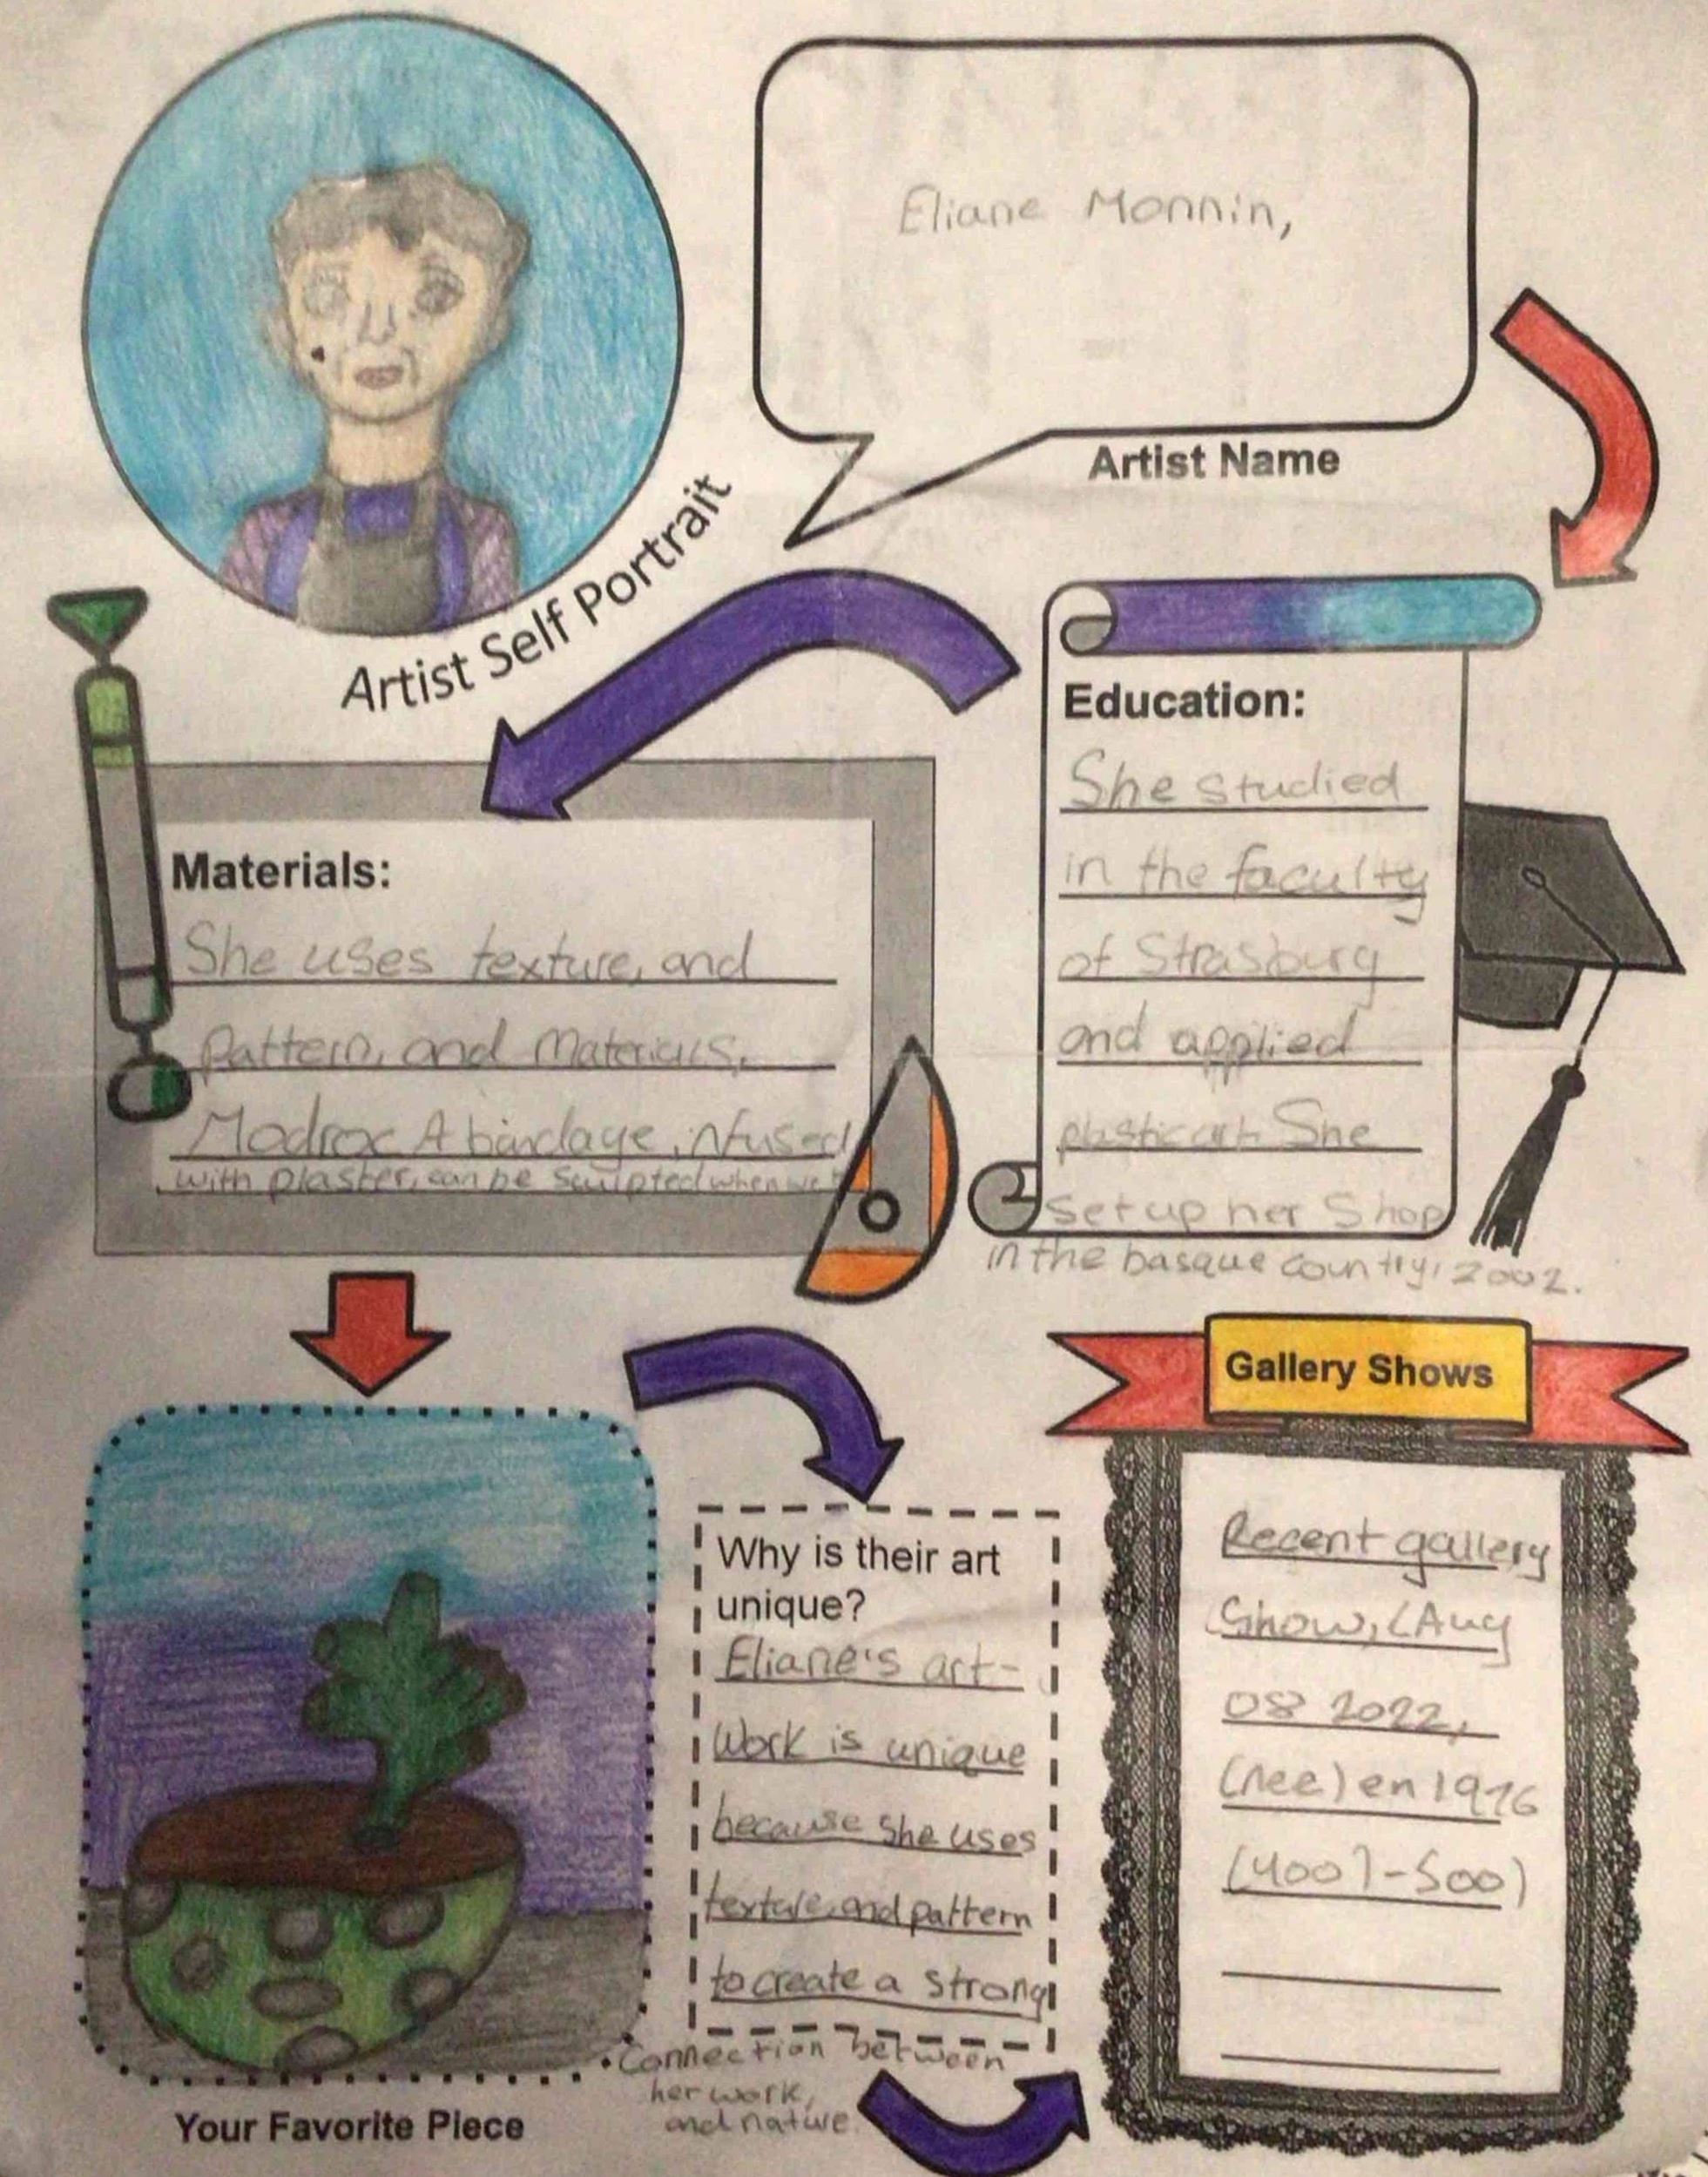 Eliane Monnin,
Artist Name
Artist Self Portrait
Education:
She studied
in the faculty
of Strasburg
and applied
plastic art. She
setup her Shop
in the basque country, 2002.
Materials:
She uses texture, and
Pattern, and Materials,
Modrox A bandage infused
with plaster, can be sculpted when wet
Your Favorite Piece
Why is their art
unique?
Eliane's art-
Work is unique
because she uses
texture, and pattern
to create a strong
Connection between
her work,
and nature.
Gallery Shows
Recent gallery
Show, (Aug
08 2022,
(nee) en 1976